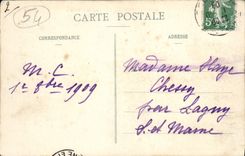 54
CARTE POSTALE
CORRESPONDANCE
ADRESSE
M. C.
1er 8bre 1909
Madame
Chessy
par Lagny
S. et Marne